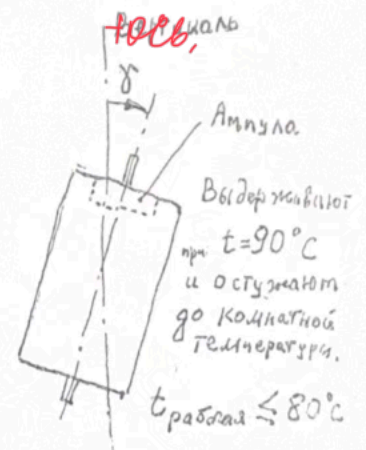 юсь,
γ
Ампула
Выдерживают
при t=90°C
и остужают
до комнатной
температуры.
t рабочая ≤ 80°C